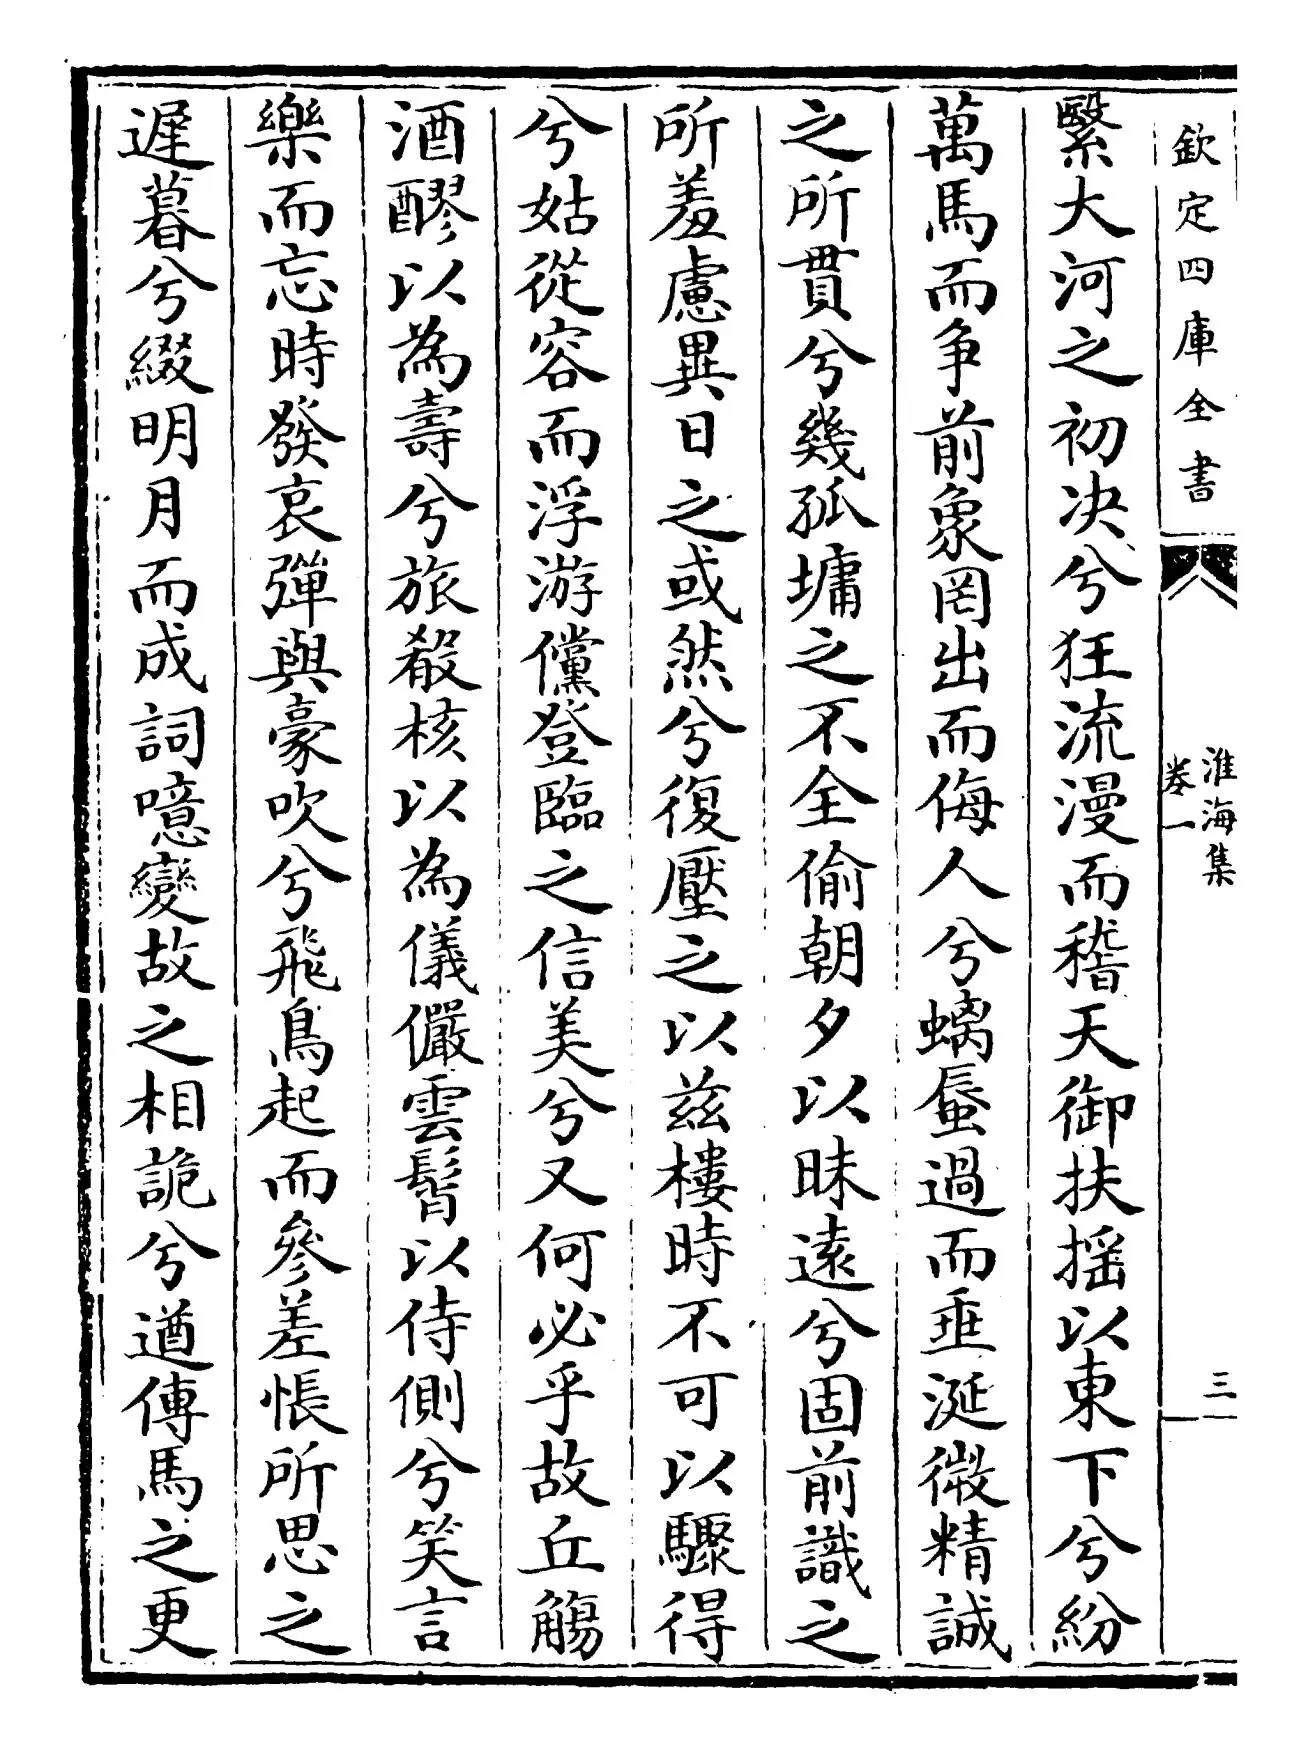 欽定四庫全書
淮海集
卷一
三
繄大河之初决兮狂流漫而稽天御扶揺以東下兮紛
萬馬而争前象罔出而侮人兮螭蜃過而垂涎微精誠
之所貫兮幾孤墉之不全偷朝夕以昧逺兮固前識之
所羞慮異日之或然兮復壓之以兹樓時不可以驟得
兮姑從容而浮游儻登臨之信美兮又何必乎故丘觴
酒醪以為壽兮旅殽核以為儀儼雲髾以侍側兮笑言
樂而忘時發哀彈與豪吹兮飛鳥起而參差悵所思之
遲暮兮綴明月而成詞噫變故之相詭兮遒傳馬之更